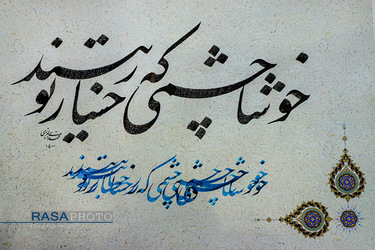 خوشا چشمی که رخسار تو بیند
خوشا چشمی که رخسار تو بیند
RASAPHOTO